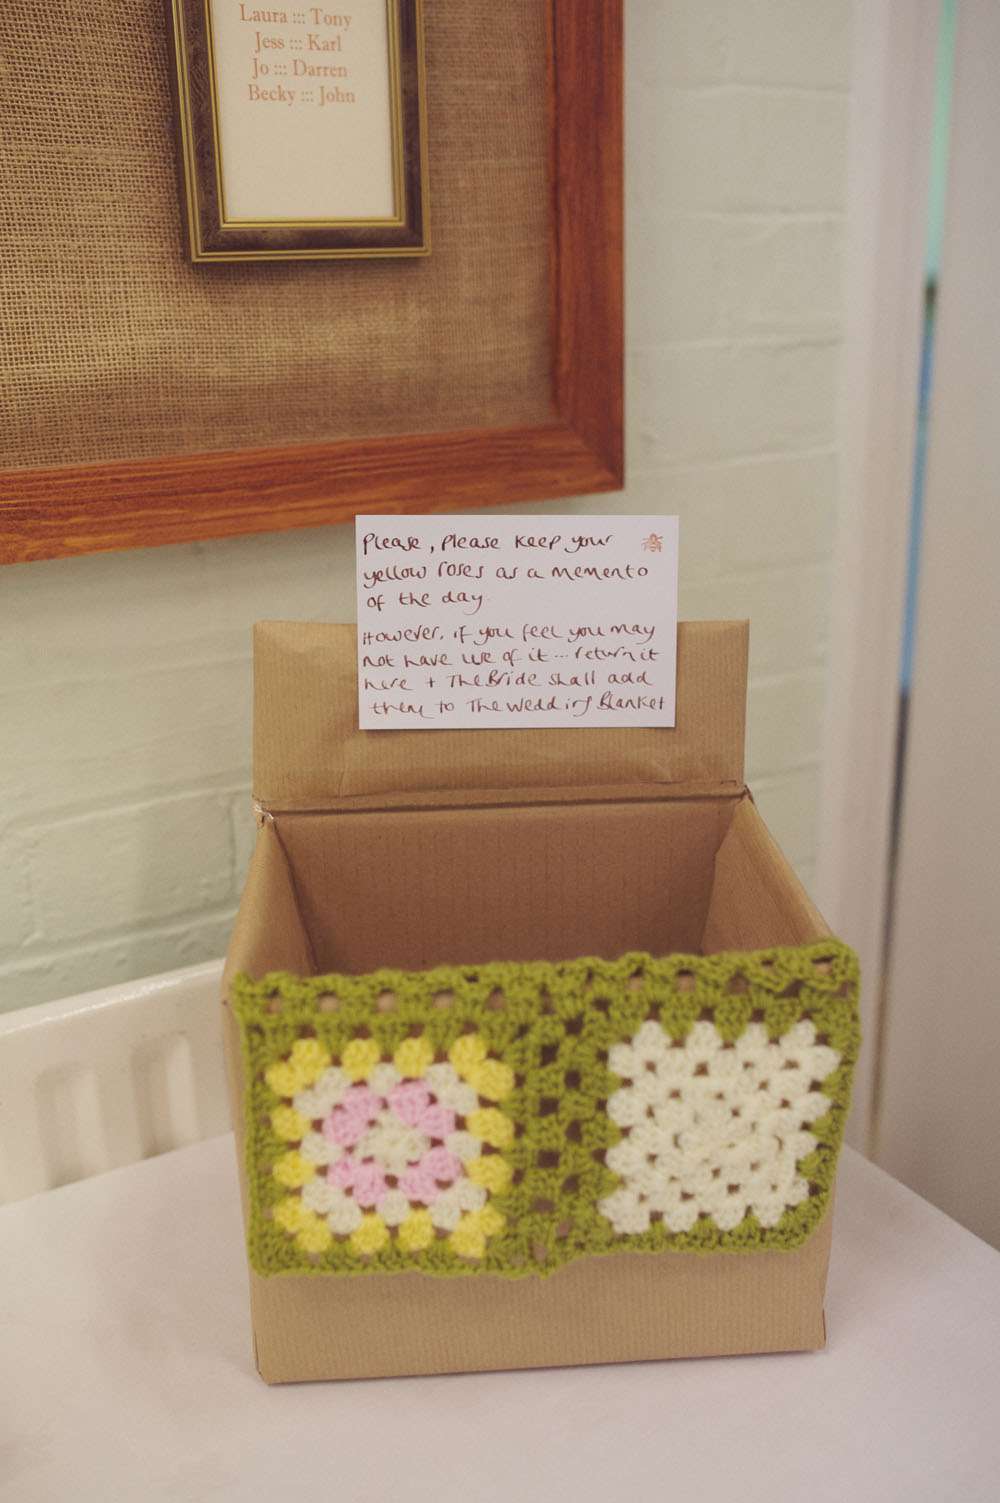 Laura ::: Tony
Jess ::: Karl
Jo ::: Darren
Becky ::: John
Please, Please keep your
yellow roses as a memento
of the day.
However, if you feel you may
not have use of it... return it
here + The Bride shall add
them to The Wedding Blanket